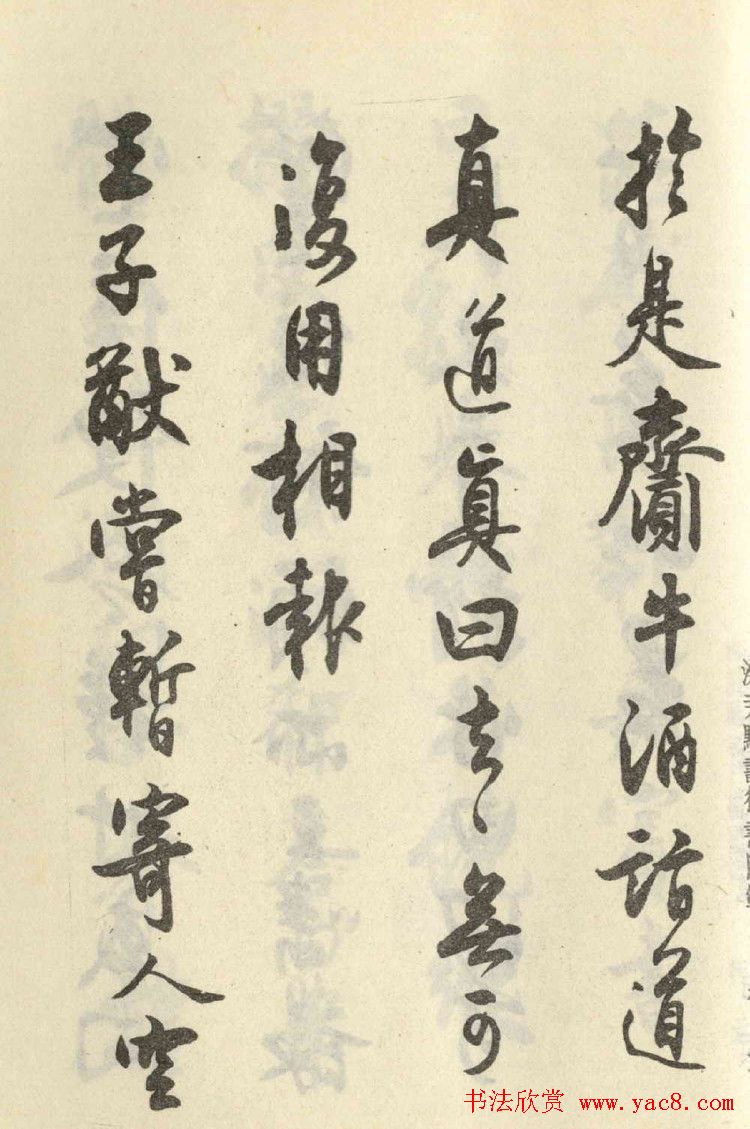 於是齎牛酒詣道
真道真曰去〻無可
復用相報
王子猷嘗暫寄人空
书法欣赏 www.yac8.com